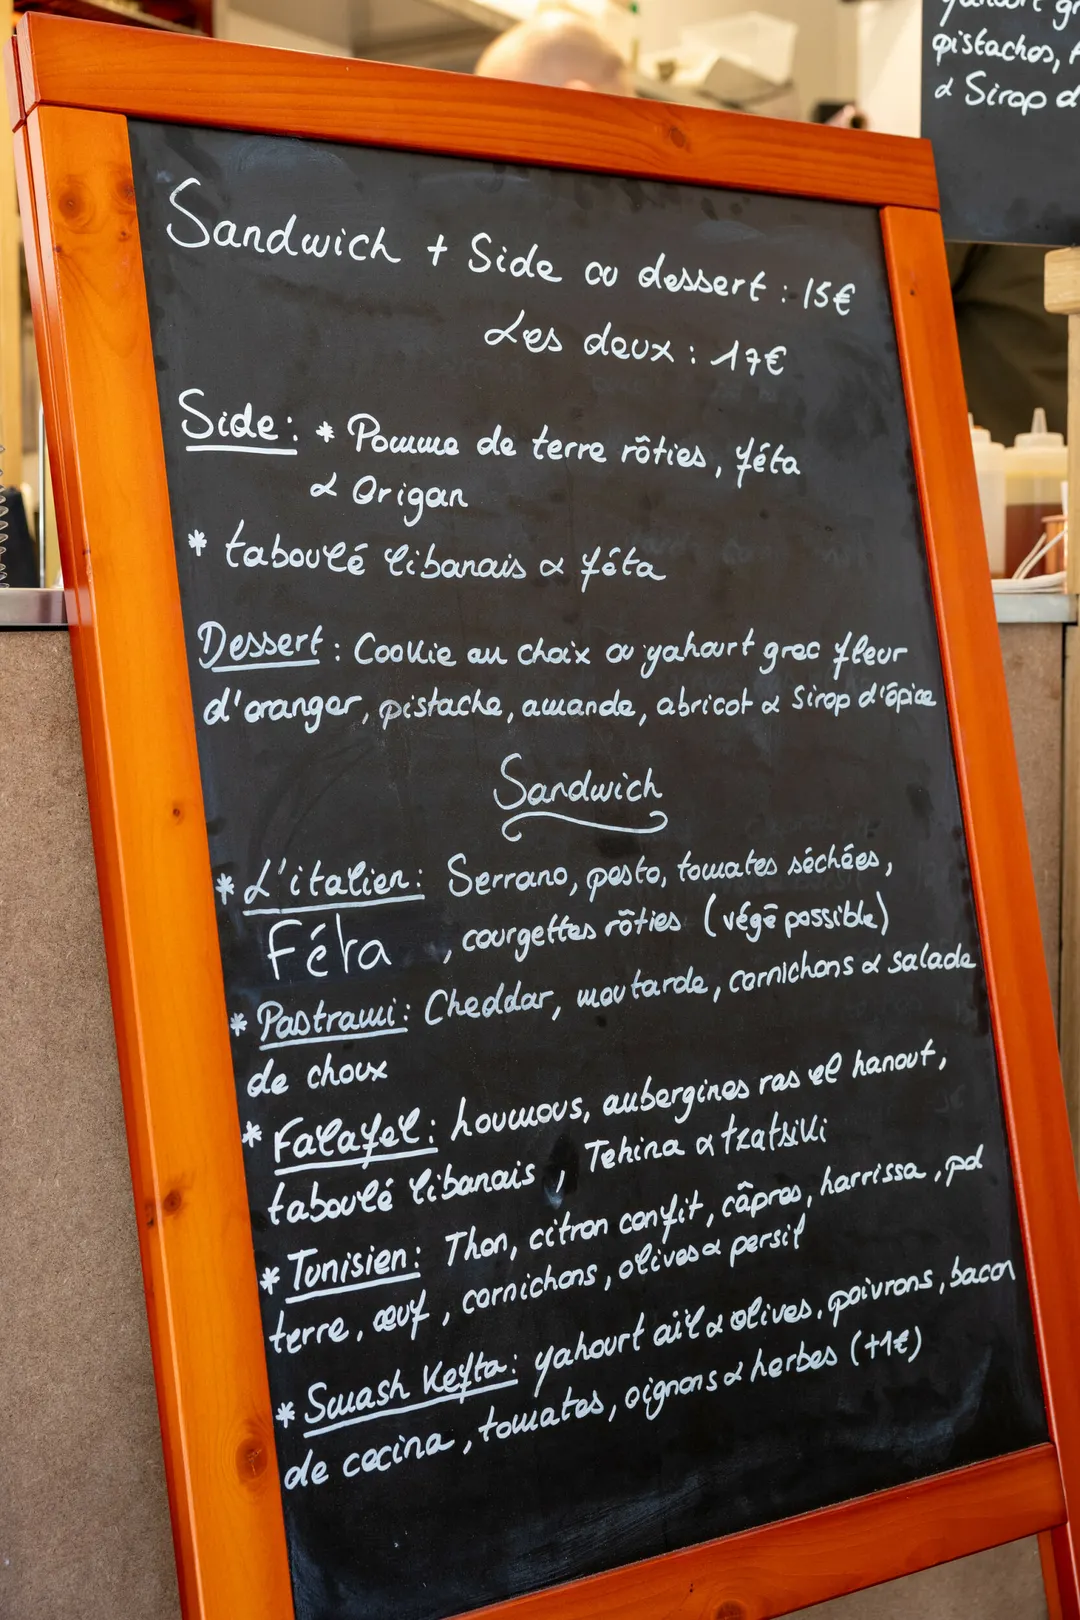 Sandwich + Side ou dessert : 15€
Les deux : 17€
Side : * Pomme de terre rôties, féta
& Origan
* taboulé libanais & féta
Dessert : Cookie au choix ou yahourt grec fleur
d'oranger, pistache, amande, abricot & Sirop d'épice
Sandwich
* L'italien : Serrano, pesto, tomates séchées,
Féta , courgettes rôties (végé possible)
* Pastrami : Cheddar, moutarde, cornichons & salade
de choux
* Falafel : houmous, aubergines ras el hanout,
taboulé libanais , Tehina & tzatsiki
* Tunisien : Thon, citron confit, câpres, harrissa, pd
terre, œuf, cornichons, olives & persil
* Smash Kefta : yahourt ail & olives, poivrons, bacon
de cecina, tomates, oignons & herbes (+1€)
pistachos,
& Sirop d